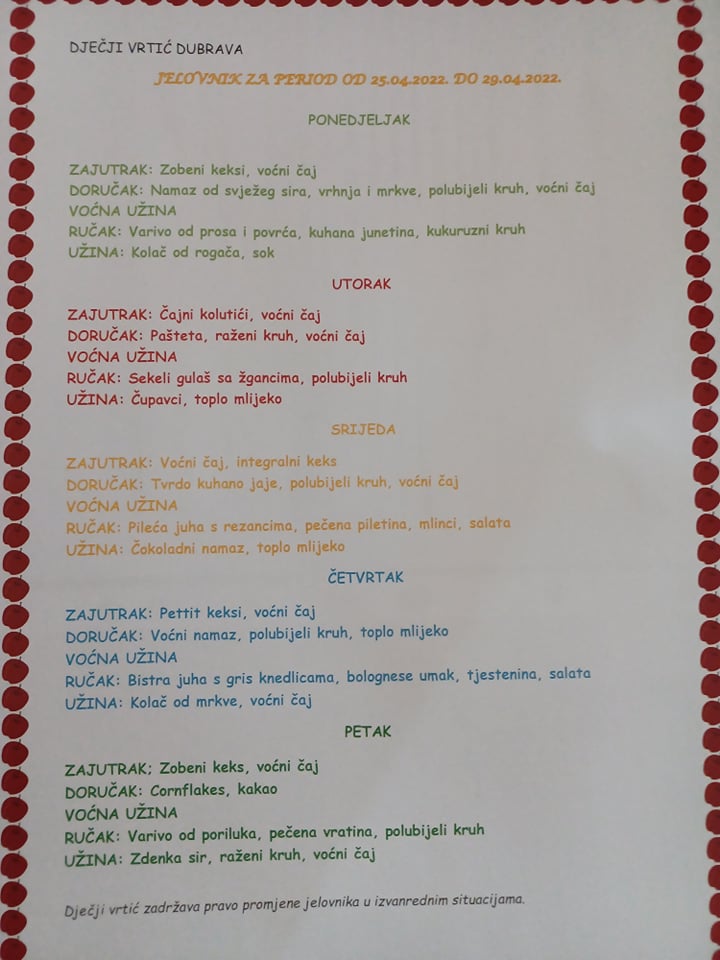 DJEČJI VRTIĆ DUBRAVA
JELOVNIK ZA PERIOD OD 25.04.2022. DO 29.04.2022.
PONEDJELJAK
ZAJUTRAK: Zobeni keksi, voćni čaj
DORUČAK: Namaz od svježeg sira, vrhnja i mrkve, polubijeli kruh, voćni čaj
VOĆNA UŽINA
RUČAK: Varivo od prosa i povrća, kuhana junetina, kukuruzni kruh
UŽINA: Kolač od rogača, sok
UTORAK
ZAJUTRAK: Čajni kolutići, voćni čaj
DORUČAK: Pašteta, raženi kruh, voćni čaj
VOĆNA UŽINA
RUČAK: Sekeli gulaš sa žgancima, polubijeli kruh
UŽINA: Čupavci, toplo mlijeko
SRIJEDA
ZAJUTRAK: Voćni čaj, integralni keks
DORUČAK: Tvrdo kuhano jaje, polubijeli kruh, voćni čaj
VOĆNA UŽINA
RUČAK: Pileća juha s rezancima, pečena piletina, mlinci, salata
UŽINA: Čokoladni namaz, toplo mlijeko
ČETVRTAK
ZAJUTRAK: Pettit keksi, voćni čaj
DORUČAK: Voćni namaz, polubijeli kruh, toplo mlijeko
VOĆNA UŽINA
RUČAK: Bistra juha s gris knedlicama, bolognese umak, tjestenina, salata
UŽINA: Kolač od mrkve, voćni čaj
PETAK
ZAJUTRAK; Zobeni keks, voćni čaj
DORUČAK: Cornflakes, kakao
VOĆNA UŽINA
RUČAK: Varivo od poriluka, pečena vratina, polubijeli kruh
UŽINA: Zdenka sir, raženi kruh, voćni čaj
Dječji vrtić zadržava pravo promjene jelovnika u izvanrednim situacijama.